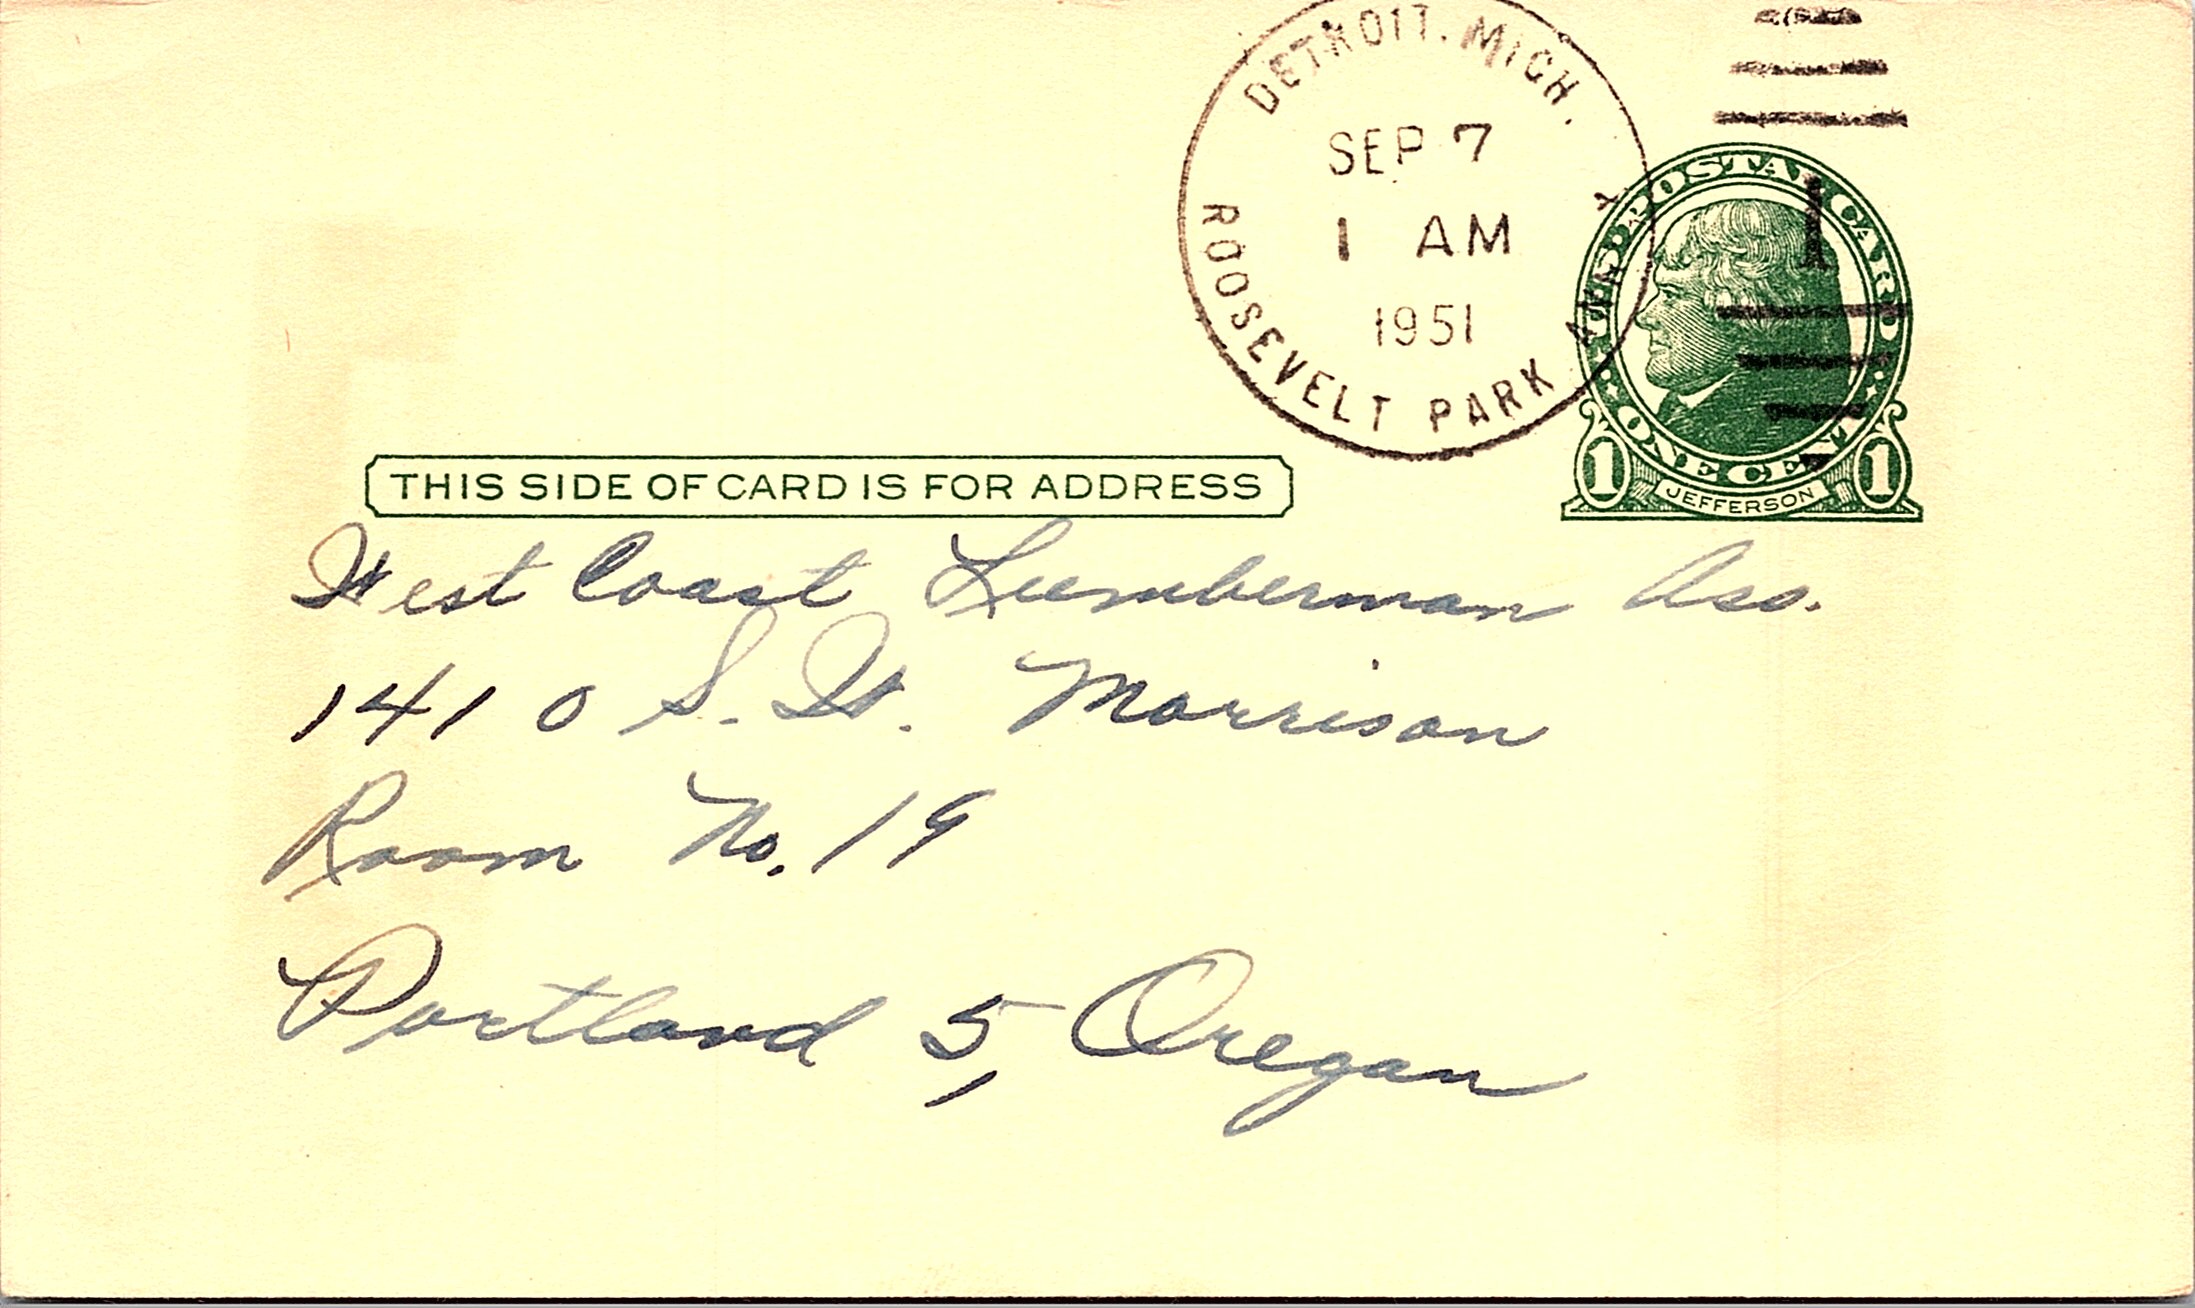 DETROIT, MICH.
SEP 7
1 AM
1951
ROOSEVELT PARK ANNEX
1
U.S. POSTAL CARD
ONE CENT
1 1
JEFFERSON
THIS SIDE OF CARD IS FOR ADDRESS
West Coast Lumberman Ass.
1410 S. W. Morrison
Room No. 19
Portland 5, Oregan